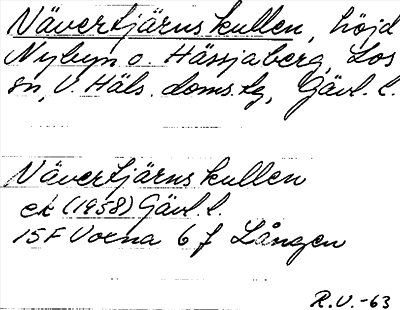 Nävertjärnskullen, höjd
Nybyn o. Hässjaberg, Los
sn, V. Häls. doms.tg, Gävl. l.
Nävertjärnskullen
ek (1958) Gävl. l.
15F Voxna 6 f Lången
R.V. -63